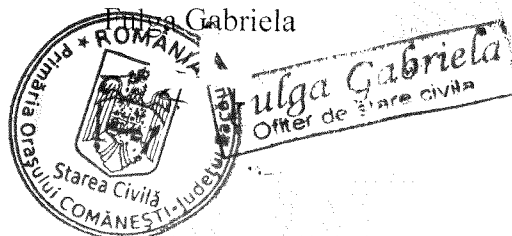 Fulga Gabriela
ROMÂNIA
Primăria Orașului COMĂNEȘTI-Județul Bacău
Starea Civilă
Fulga Gabriela
Ofiter de stare civila